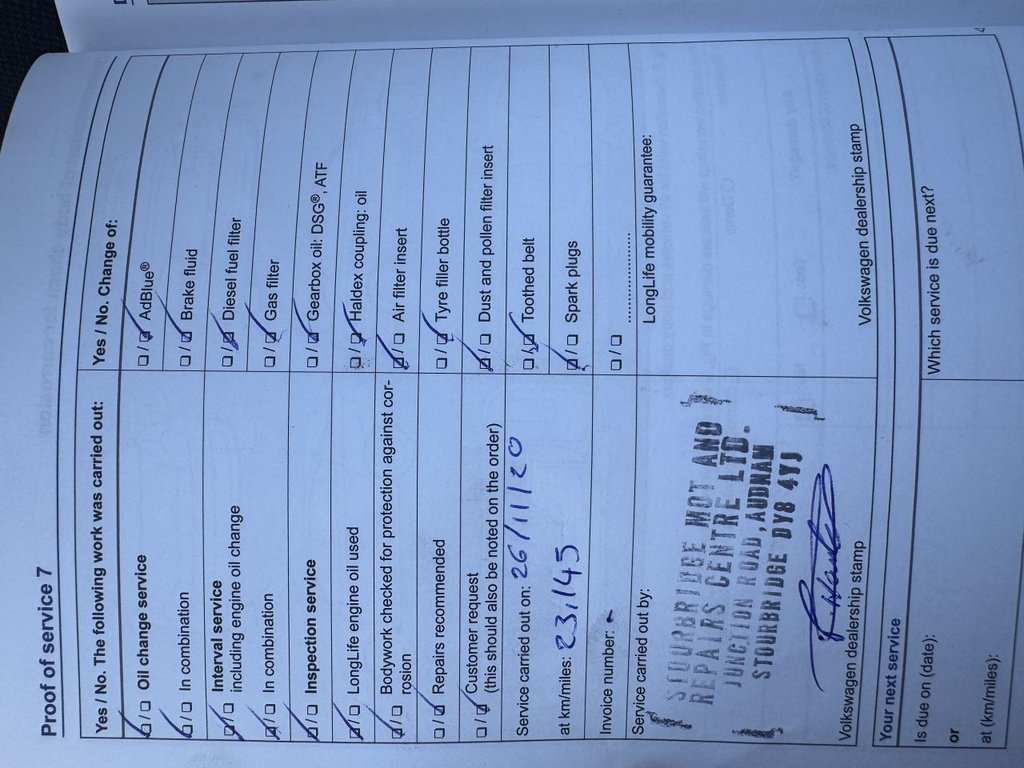 Proof of service 7
Yes / No. The following work was carried out:
☑ / ☐ Oil change service
☑ / ☐ In combination
☑ / ☐ Interval service
including engine oil change
☑ / ☐ In combination
☑ / ☐ Inspection service
☑ / ☐ LongLife engine oil used
☑ / ☐ Bodywork checked for protection against cor-
rosion
☐ / ☑ Repairs recommended
☐ / ☑ Customer request
(this should also be noted on the order)
Service carried out on: 26/11/20
at km/miles: 23,145
Invoice number: -
Service carried out by:
STOURBRIDGE MOT AND
REPAIRS CENTRE LTD.
JUNCTION ROAD, AUDNAM
STOURBRIDGE DY8 4YJ
Volkswagen dealership stamp
Yes / No. Change of:
☐ / ☑ AdBlue®
☐ / ☑ Brake fluid
☐ / ☑ Diesel fuel filter
☐ / ☑ Gas filter
☐ / ☑ Gearbox oil: DSG®, ATF
☐ / ☑ Haldex coupling: oil
☑ / ☐ Air filter insert
☐ / ☑ Tyre filler bottle
☑ / ☐ Dust and pollen filter insert
☐ / ☑ Toothed belt
☑ / ☐ Spark plugs
☐ / ☐ ....................
LongLife mobility guarantee:
Volkswagen dealership stamp
Your next service
Is due on (date):
or
at (km/miles):
Which service is due next?